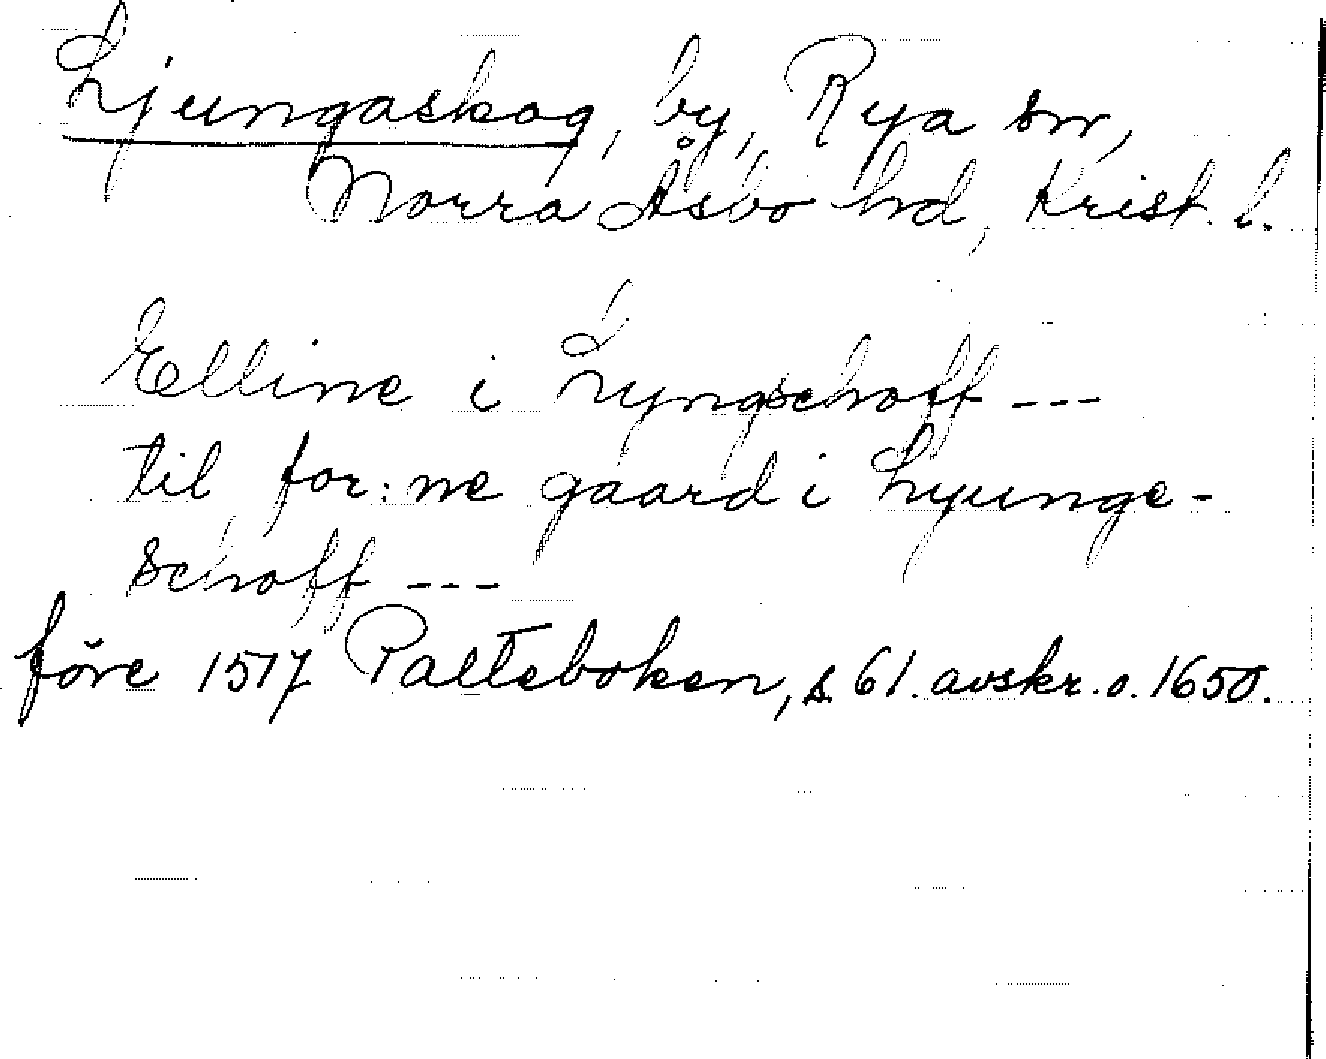 Ljungaskog, by, Rya sn,
Norra Åsbo hd, Krist. l.
Elline i Lyngschoff ---
til for: ne gaard i Lyunge-
schoff ---
före 1517 Palteboken, s. 61. avskr. o. 1650.